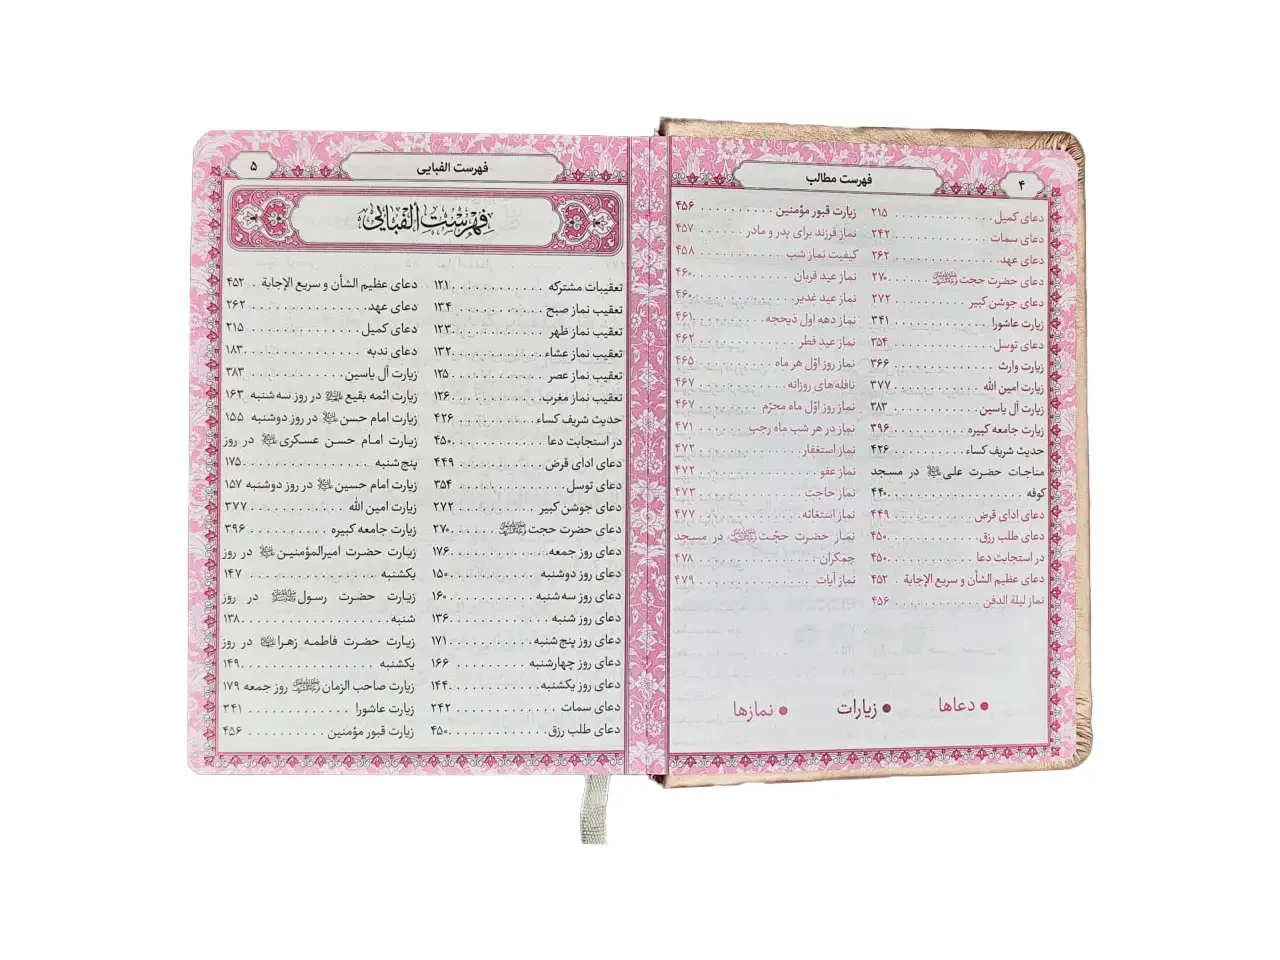 ۴
فهرست مطالب
دعای کمیل ۲۱۵
دعای سمات ۲۴۲
دعای عهد ۲۶۲
دعای حضرت حجت ۲۷۰
دعای جوشن کبیر ۲۷۲
زیارت عاشورا ۳۴۱
دعای توسل ۳۵۴
زیارت وارث ۳۶۶
زیارت امین الله ۳۷۷
زیارت آل یاسین ۳۸۳
زیارت جامعه کبیره ۳۹۶
حدیث شریف کساء ۴۲۶
مناجات حضرت علی در مسجد
کوفه ۴۴۰
دعای ادای قرض ۴۴۹
دعای طلب رزق ۴۵۰
در استجابت دعا ۴۵۰
دعای عظیم الشأن و سریع الإجابة ۴۵۲
نماز لیلة الدفن ۴۵۶
زیارت قبور مؤمنین ۴۵۶
نماز فرزند برای پدر و مادر ۴۵۷
کیفیت نماز شب ۴۵۸
نماز عید قربان ۴۶۰
نماز عید غدیر ۴۶۰
نماز دهه اول ذیحجه ۴۶۱
نماز عید فطر ۴۶۲
نماز روز اوّل هر ماه ۴۶۵
نافله‌های روزانه ۴۶۷
نماز روز اوّل ماه محرّم ۴۶۷
نماز در هر شب ماه رجب ۴۷۱
نماز استغفار ۴۷۲
نماز عفو ۴۷۲
نماز حاجت ۴۷۳
نماز استغاثه ۴۷۷
نماز حضرت حجّت در مسجد
جمکران ۴۷۸
نماز آیات ۴۷۹
● دعاها ● زیارات ● نمازها
فهرست الفبایی
۵
فهرست الفبایی
تعقیبات مشترکه ۱۲۱
تعقیب نماز صبح ۱۳۴
تعقیب نماز ظهر ۱۲۳
تعقیب نماز عشاء ۱۳۲
تعقیب نماز عصر ۱۲۵
تعقیب نماز مغرب ۱۲۶
حدیث شریف کساء ۴۲۶
در استجابت دعا ۴۵۰
دعای ادای قرض ۴۴۹
دعای توسل ۳۵۴
دعای جوشن کبیر ۲۷۲
دعای حضرت حجت ۲۷۰
دعای روز جمعه ۱۷۶
دعای روز دوشنبه ۱۵۰
دعای روز سه‌شنبه ۱۶۰
دعای روز شنبه ۱۳۶
دعای روز پنج‌شنبه ۱۷۱
دعای روز چهارشنبه ۱۶۶
دعای روز یکشنبه ۱۴۴
دعای سمات ۲۴۲
دعای طلب رزق ۴۵۰
دعای عظیم الشأن و سریع الإجابة ۴۵۲
دعای عهد ۲۶۲
دعای کمیل ۲۱۵
دعای ندبه ۱۸۳
زیارت آل یاسین ۳۸۳
زیارت ائمه بقیع در روز سه‌شنبه ۱۶۳
زیارت امام حسن در روز دوشنبه ۱۵۵
زیارت امام حسن عسکری در روز
پنج‌شنبه ۱۷۵
زیارت امام حسین در روز دوشنبه ۱۵۷
زیارت امین الله ۳۷۷
زیارت جامعه کبیره ۳۹۶
زیارت حضرت امیرالمؤمنین در روز
یکشنبه ۱۴۷
زیارت حضرت رسول در روز
شنبه ۱۳۸
زیارت حضرت فاطمه زهرا در روز
یکشنبه ۱۴۹
زیارت صاحب الزمان روز جمعه ۱۷۹
زیارت عاشورا ۳۴۱
زیارت قبور مؤمنین ۴۵۶